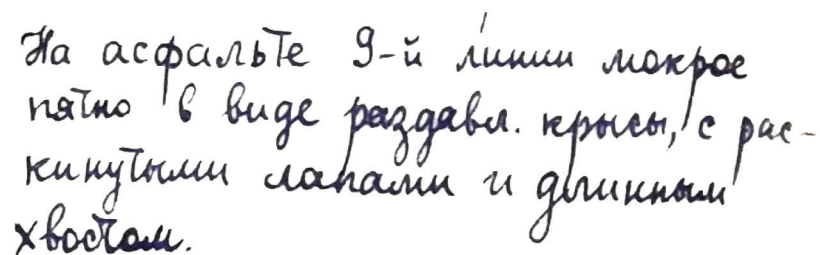 На асфальте 9-й линии мокрое
пятно в виде раздавл. крысы, с рас-
кинутыми лапами и длинным
хвостом.